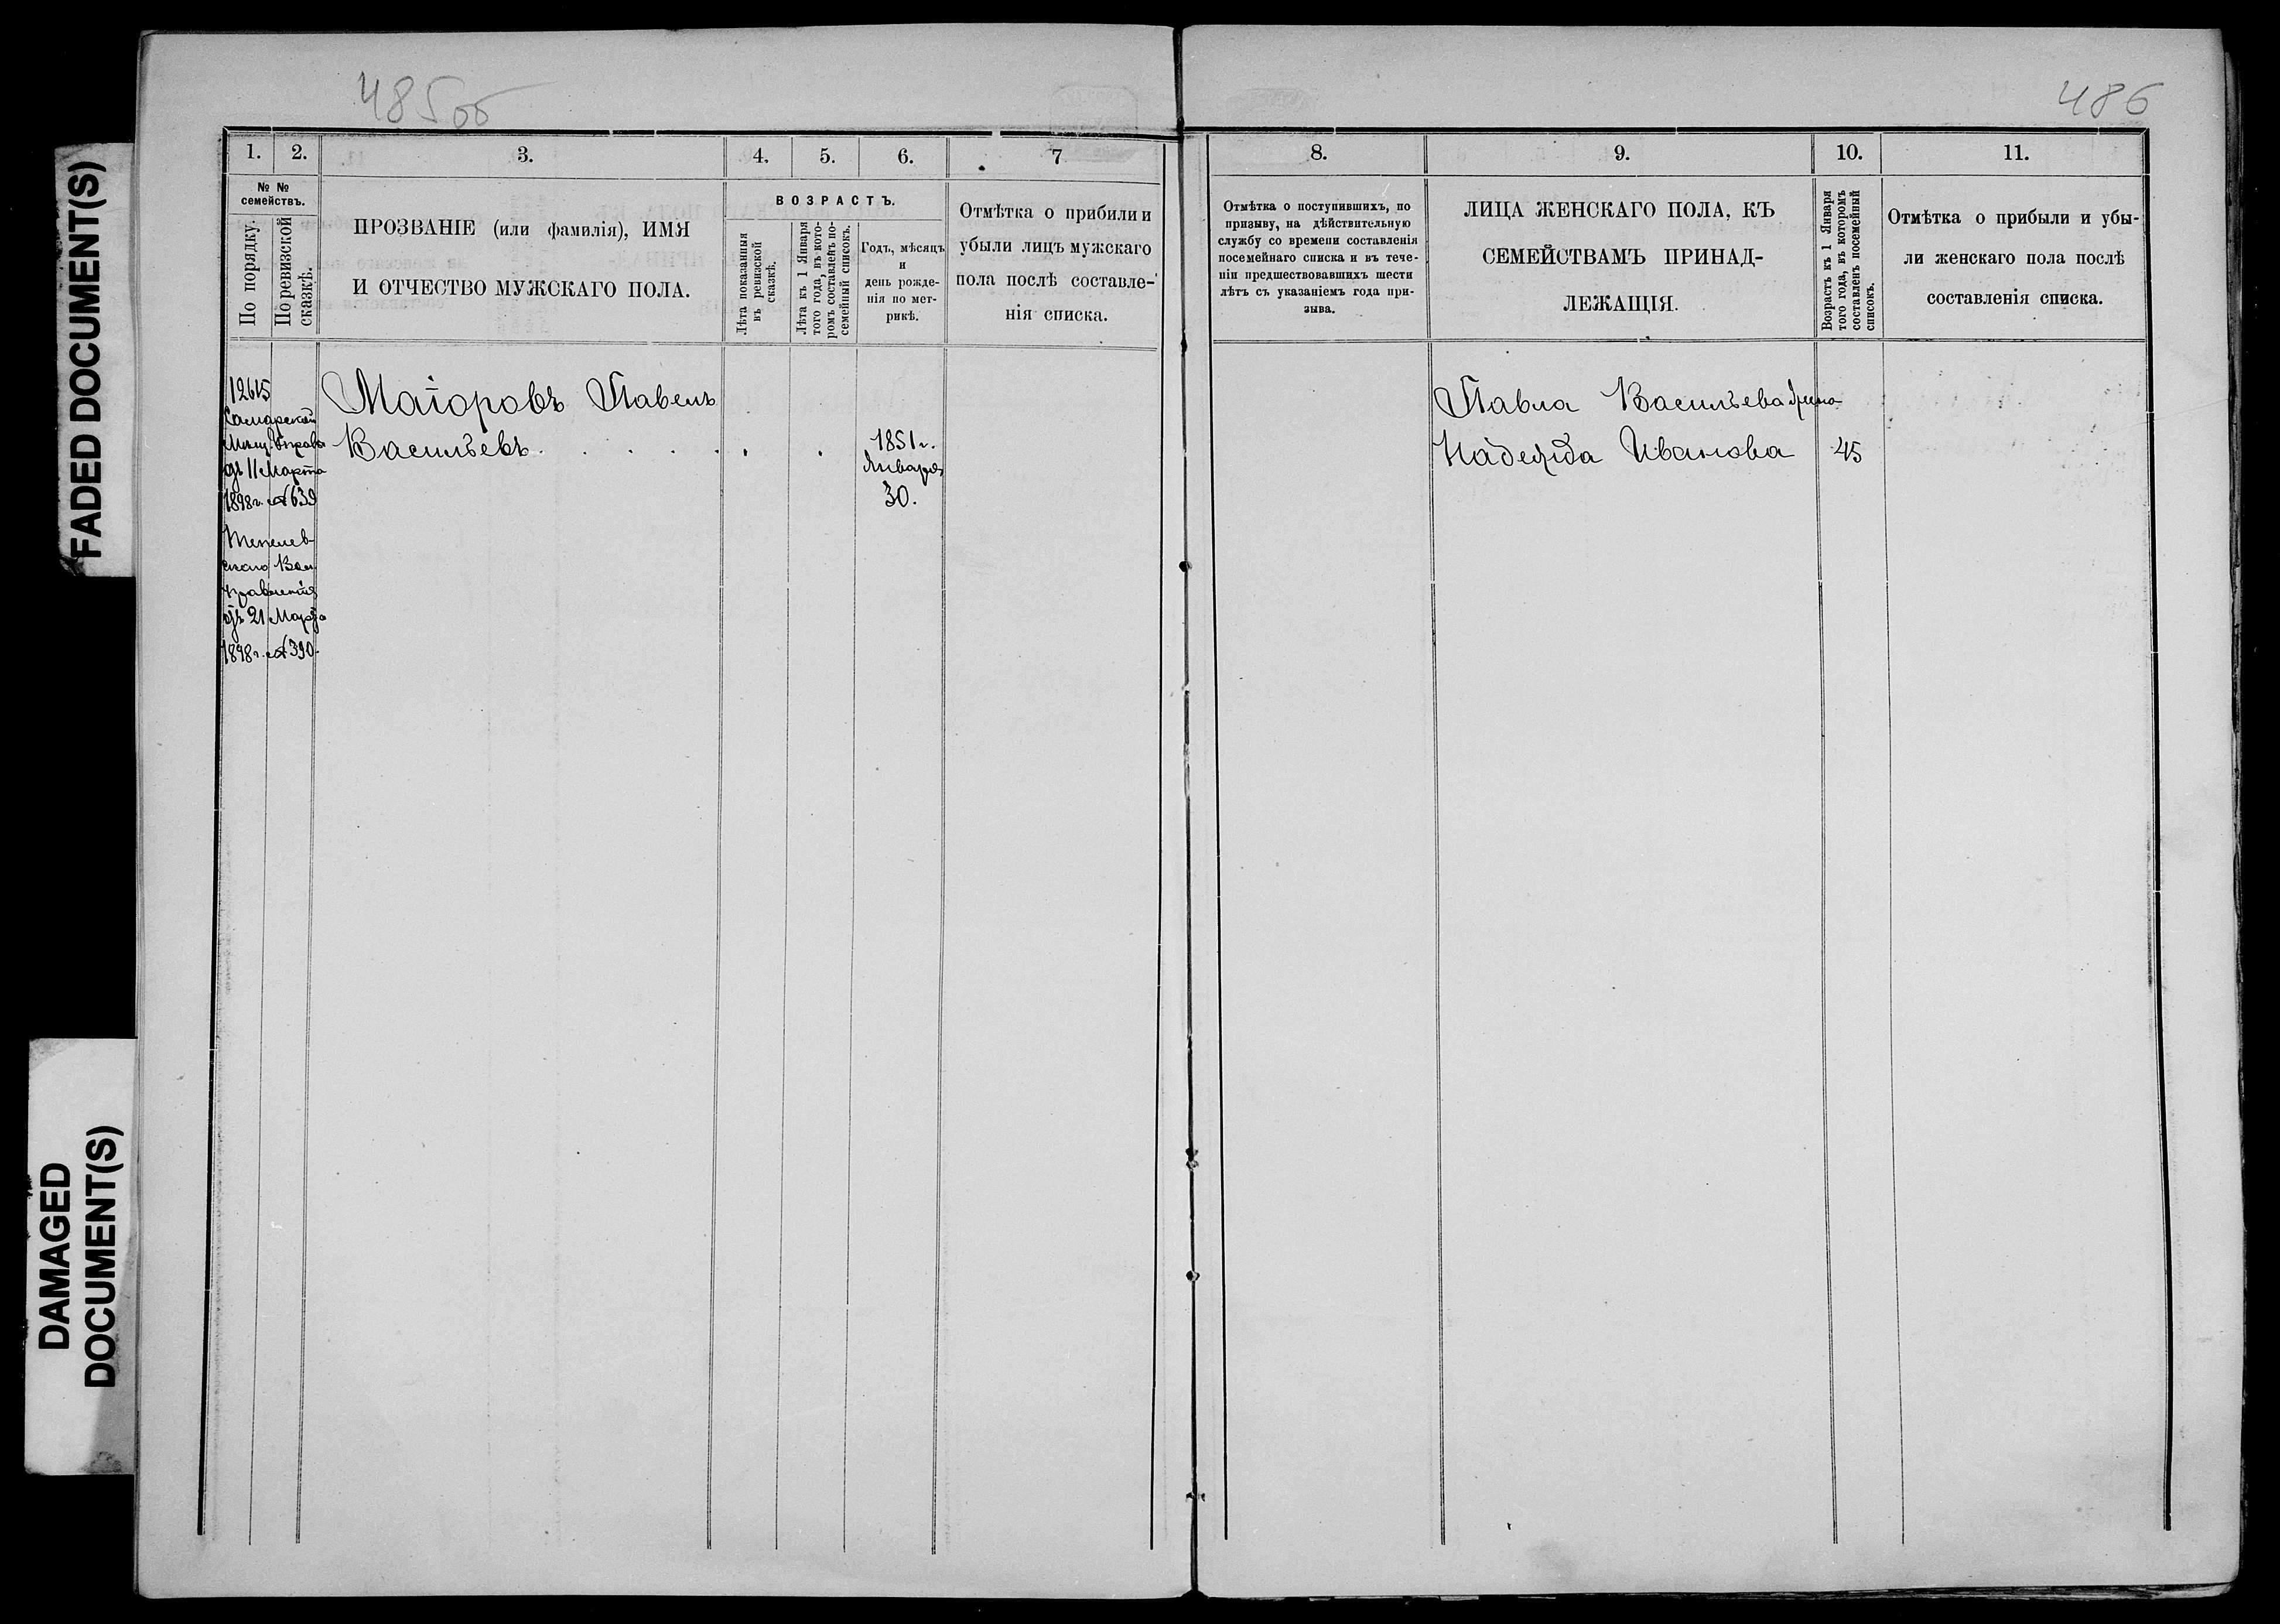 FADED DOCUMENT(S)
DAMAGED
DOCUMENT(S)
485об
1.
2.
3.
4.
5.
6.
7
№ №
семействъ.
По порядку.
По ревизской
сказкѣ.
ПРОЗВАНІЕ (или фамилія), ИМЯ
И ОТЧЕСТВО МУЖСКАГО ПОЛА.
ВОЗРАСТЪ.
Лѣта показанныя
въ ревизской
сказкѣ.
Лѣта къ 1 Января
того года, въ кото-
ромъ составленъ по-
семейный списокъ.
Годъ, мѣсяцъ
и
день рожде-
нія по мет-
рикѣ.
Отмѣтка о прибили и
убыли лицъ мужскаго
пола послѣ составле-
нія списка.
12615
Самарской
Мѣщ. Управы
отъ 11 Марта
1898г. № 639
скаго Вол.
правленія
отъ 21 Марта
1898г. № 390.
Маіоровъ Павелъ
Васильевъ . . . . . . .
1851г.
Января
30.
486
8.
9.
10.
11.
Отмѣтка о поступившихъ, по
призыву, на дѣйствительную
службу со времени составленія
посемейнаго списка и въ тече-
ніи предшествовавшихъ шести
лѣтъ съ указаніемъ года при-
зыва.
ЛИЦА ЖЕНСКАГО ПОЛА, КЪ
СЕМЕЙСТВАМЪ ПРИНАД-
ЛЕЖАЩІЯ.
Возрастъ къ 1 Января
того года, въ которомъ
составленъ посемейный
списокъ.
Отмѣтка о прибыли и убы-
ли женскаго пола послѣ
составленія списка.
Павла Васильева жена
Надежда Иванова 45